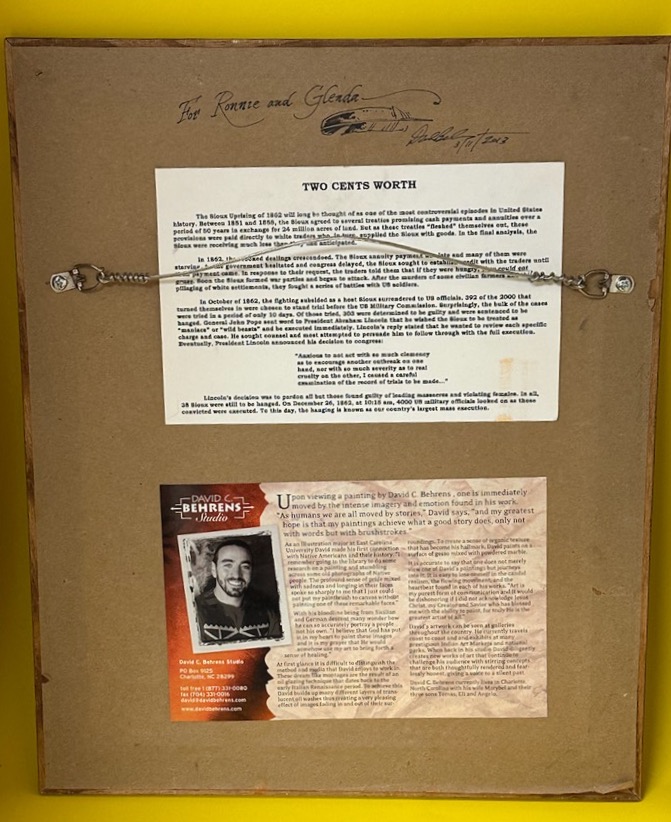 For Ronnie and Glenda
3/11/2013
TWO CENTS WORTH
The Sioux Uprising of 1862 will long be thought of as one of the most controversial episodes in United States
history. Between 1851 and 1858, the Sioux agreed to several treaties promising cash payments and annuities over a
period of 50 years in exchange for 24 million acres of land. But as these treaties "fleshed" themselves out, these
provisions were paid directly to white traders who, in turn, supplied the Sioux with goods. In the final analysis, the
Sioux were receiving much less than they had anticipated.
In 1862, the dealings crescendoed. The Sioux annuity payment and many of them were
starving. government hesitated and congress delayed, the Sioux sought to establish credit with the traders until
payment came. In response to their request, the traders told them that if they were hungry, they could eat
grass. Soon the Sioux formed war parties and began to attack. After the murders of some civilian farmers and
pillaging of white settlements, they fought a series of battles with US soldiers.
In October of 1862, the fighting subsided as a host Sioux surrendered to US officials. 392 of the 2000 that
turned themselves in were chosen to stand trial before the US Military Commission. Surprisingly, the bulk of the cases
were tried in a period of only 10 days. Of those tried, 303 were determined to be guilty and were sentenced to be
hanged. General John Pope sent word to President Abraham Lincoln that he wished the Sioux to be treated as
"maniacs" or "wild beasts" and be executed immediately. Lincoln's reply stated that he wanted to review each specific
charge and case. He sought counsel and most attempted to persuade him to follow through with the full execution.
Eventually, President Lincoln announced his decision to congress:
"Anxious to not act with so much clemency
as to encourage another outbreak on one
hand, nor with so much severity as to real
cruelty on the other, I caused a careful
examination of the record of trials to be made..."
Lincoln's decision was to pardon all but those found guilty of leading massacres and violating females. In all,
38 Sioux were still to be hanged. On December 26, 1862, at 10:15 am, 4000 US military officials looked on as those
convicted were executed. To this day, the hanging is known as our country's largest mass execution.
DAVID C.
BEHRENS
Studio
David C. Behrens Studio
PO Box 9125
Charlotte, NC 28299
toll free 1 (877) 331-0080
fax (704) 331-0016
david@davidbehrens.com
www.davidbehrens.com
Upon viewing a painting by David C. Behrens, one is immediately
moved by the intense imagery and emotion found in his work.
"As humans we are all moved by stories," David says, "and my greatest
hope is that my paintings achieve what a good story does, only not
with words but with brushstrokes."
As an illustration major at East Carolina
University David made his first connection
with Native Americans and their history. "I
remember going in the library to do some
research on a painting and stumbling
across some old photographs of Native
people. The profound sense of pride mixed
with sadness and longing in their faces
spoke so sharply to me that I just could
not put my paintbrush to canvas without
painting one of these remarkable faces."
With his bloodline being from Sicilian
and German descent many wonder how
he can so accurately portray a people
not his own. "I believe that God has put
it in my heart to paint these images
and it is my prayer that He would
somehow use my art to bring forth a
sense of healing."
At first glance it is difficult to distinguish the
method and media that David enjoys to work in.
These dream like montages are the result of an
oil glazing technique that dates back to the
early Italian Renaissance period. To achieve this
David builds up many different layers of trans-
lucent oil washes thus creating a very pleasing
effect of images fading in and out of their sur-
roundings. To create a sense of organic texture
that has become his hallmark, David paints on a
surface of gesso mixed with powdered marble.
It is accurate to say that one does not merely
view one of David's paintings but journeys
into it. It is easy to lose oneself in the candid
realism, the flowing movement, and the
heartbeat found in each of his works. "Art is
my purest form of communication and it would
be dishonoring if I did not acknowledge Jesus
Christ, my Creator and Savior who has blessed
me with the ability to paint, for truly He is the
greatest artist of all."
David's artwork can be seen at galleries
throughout the country. He currently travels
coast to coast and exhibits at many
prestigious Indian Art Markets and national
parks. When back in his studio David diligently
creates new works of art that continue to
challenge his audience with stirring concepts
that are both thoughtfully rendered and fear-
lessly honest, giving a voice to a silent past.
David C. Behrens currently lives in Charlotte,
North Carolina with his wife Marybel and their
three sons Tomas, Eli and Angelo.